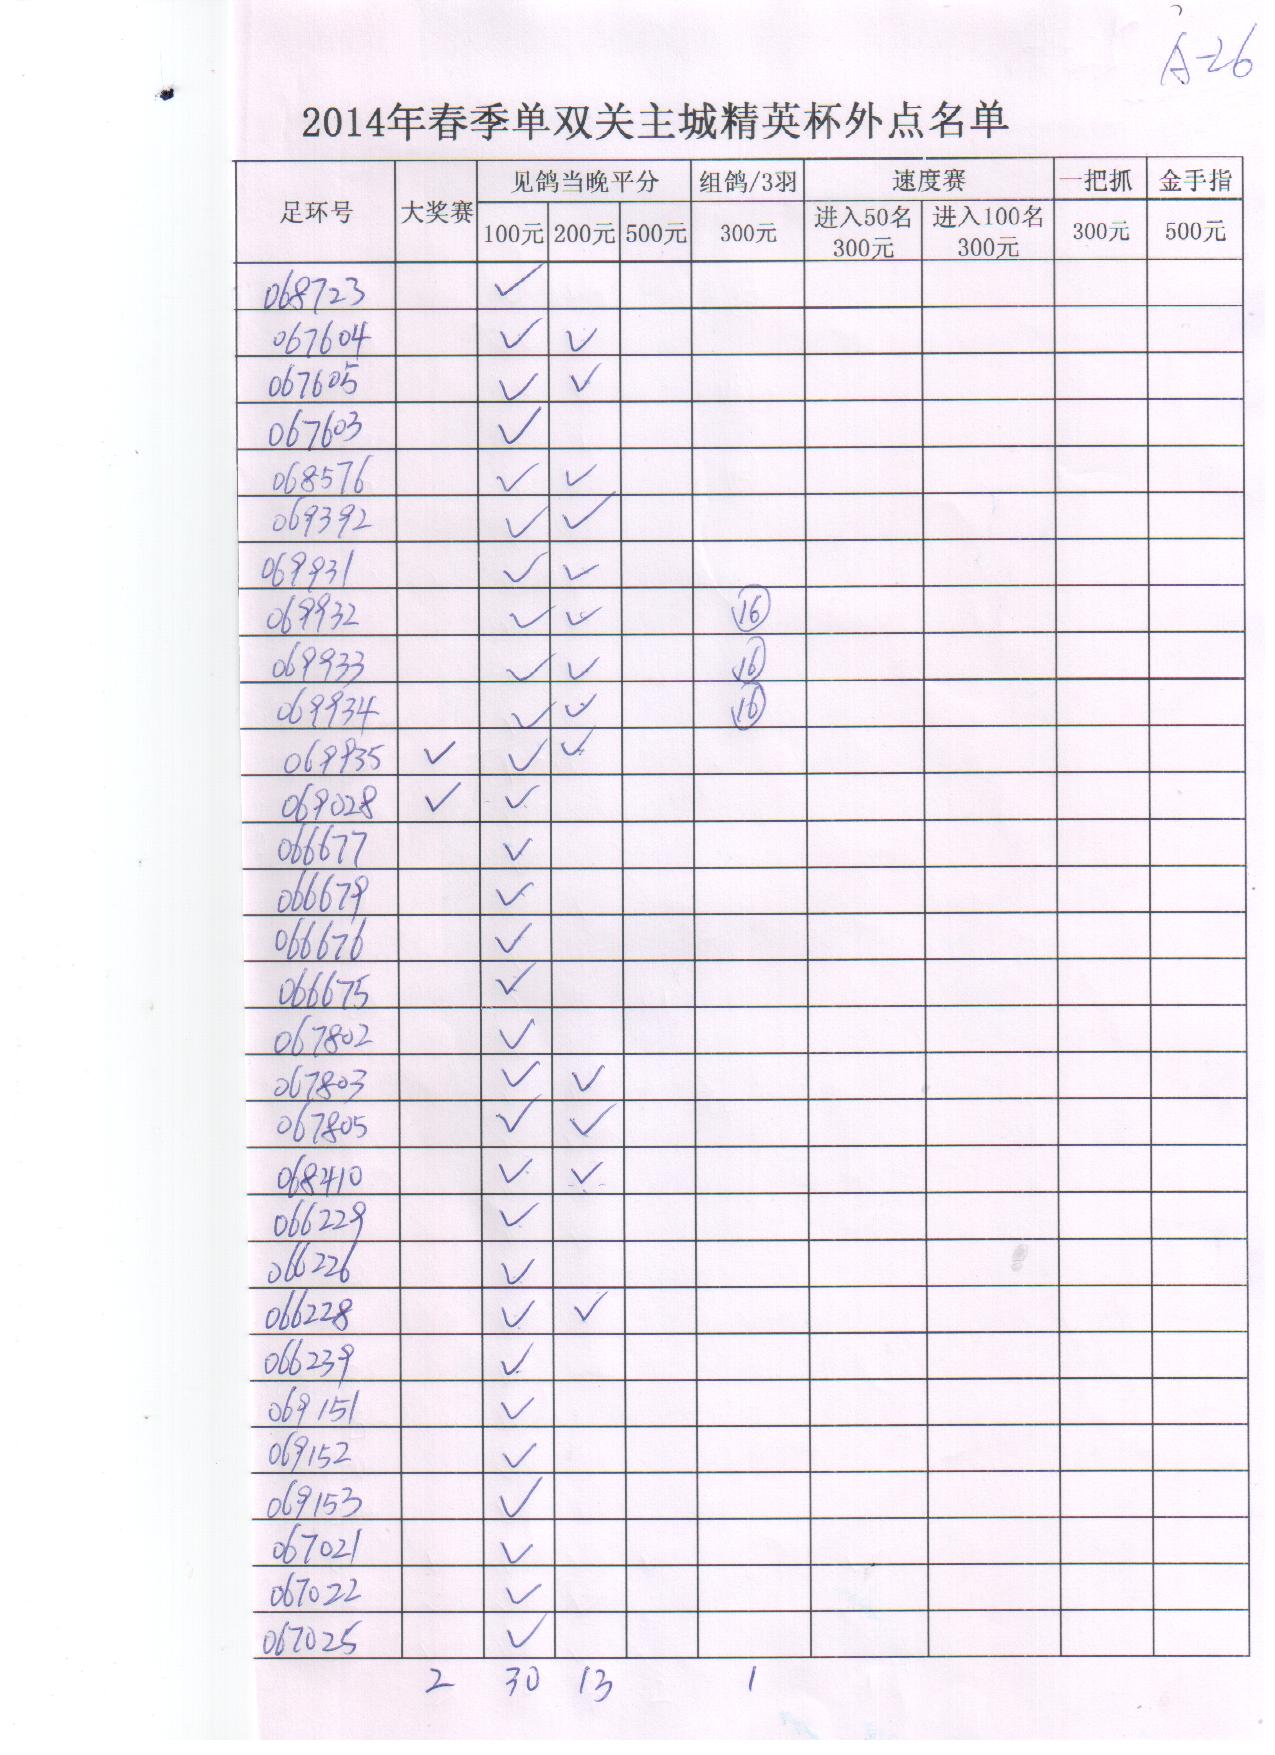 A-26
2014年春季单双关主城精英杯外点名单
足环号 大奖赛 见鸽当晚平分 组鸽/3羽 速度赛 一把抓 金手指
100元 200元 500元 300元 进入50名 300元 进入100名 300元 300元 500元
068723 ✓
067604 ✓ ✓
067605 ✓ ✓
067603 ✓
068576 ✓ ✓
069392 ✓ ✓
069931 ✓ ✓
069932 ✓ ✓ 16
069933 ✓ ✓ 16
069934 ✓ ✓ 16
069935 ✓ ✓ ✓
069028 ✓ ✓
066677 ✓
066679 ✓
066676 ✓
066675 ✓
067802 ✓
067803 ✓ ✓
067805 ✓ ✓
068410 ✓ ✓
066229 ✓
066226 ✓
066228 ✓ ✓
066239 ✓
069151 ✓
069152 ✓
069153 ✓
067021 ✓
067022 ✓
067025 ✓
2 30 13 1